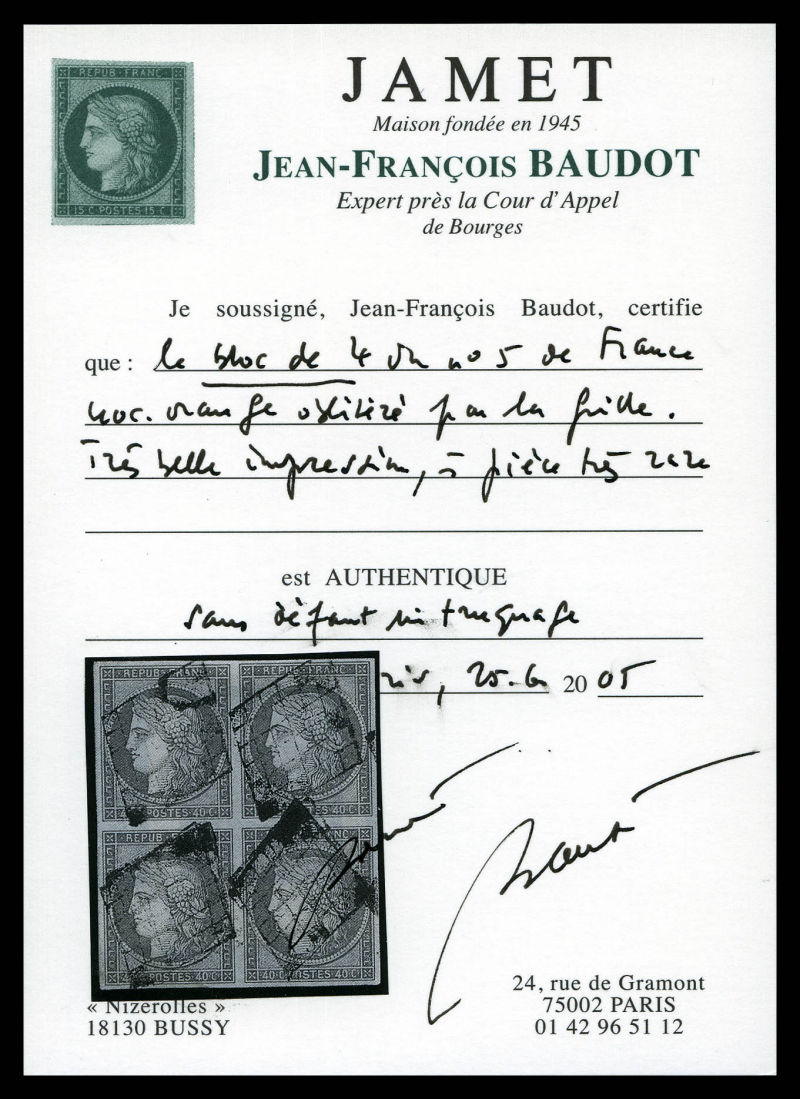 REPUB·FRANC
15 C·POSTES·15 C
JAMET
Maison fondée en 1945
JEAN-FRANÇOIS BAUDOT
Expert près la Cour d'Appel
de Bourges
Je soussigné, Jean-François Baudot, certifie
que : le bloc de 4 du no 5 de France
40c. orange oblitéré par la grille.
Très belle impression, pièce très rare
est AUTHENTIQUE
sans défaut ni truquage
25. 6 20 05
REPUB·FRANC REPUB·FRANC
40·C POSTES 40·C 40·C POSTES 40·C
REPUB·FRANC
POSTES·40·C 40·C·POSTES·40·C
« Nizerolles »
18130 BUSSY
24, rue de Gramont
75002 PARIS
01 42 96 51 12